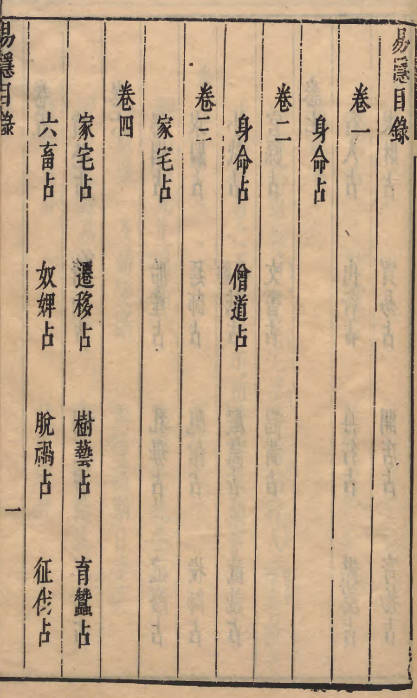 易隱目錄
卷一
身命占
卷二
身命占 僧道占
卷三
家宅占
卷四
家宅占 遷移占 樹藝占 育蠶占
六畜占 奴婢占 脫禍占 征伐占
易隱目錄 一